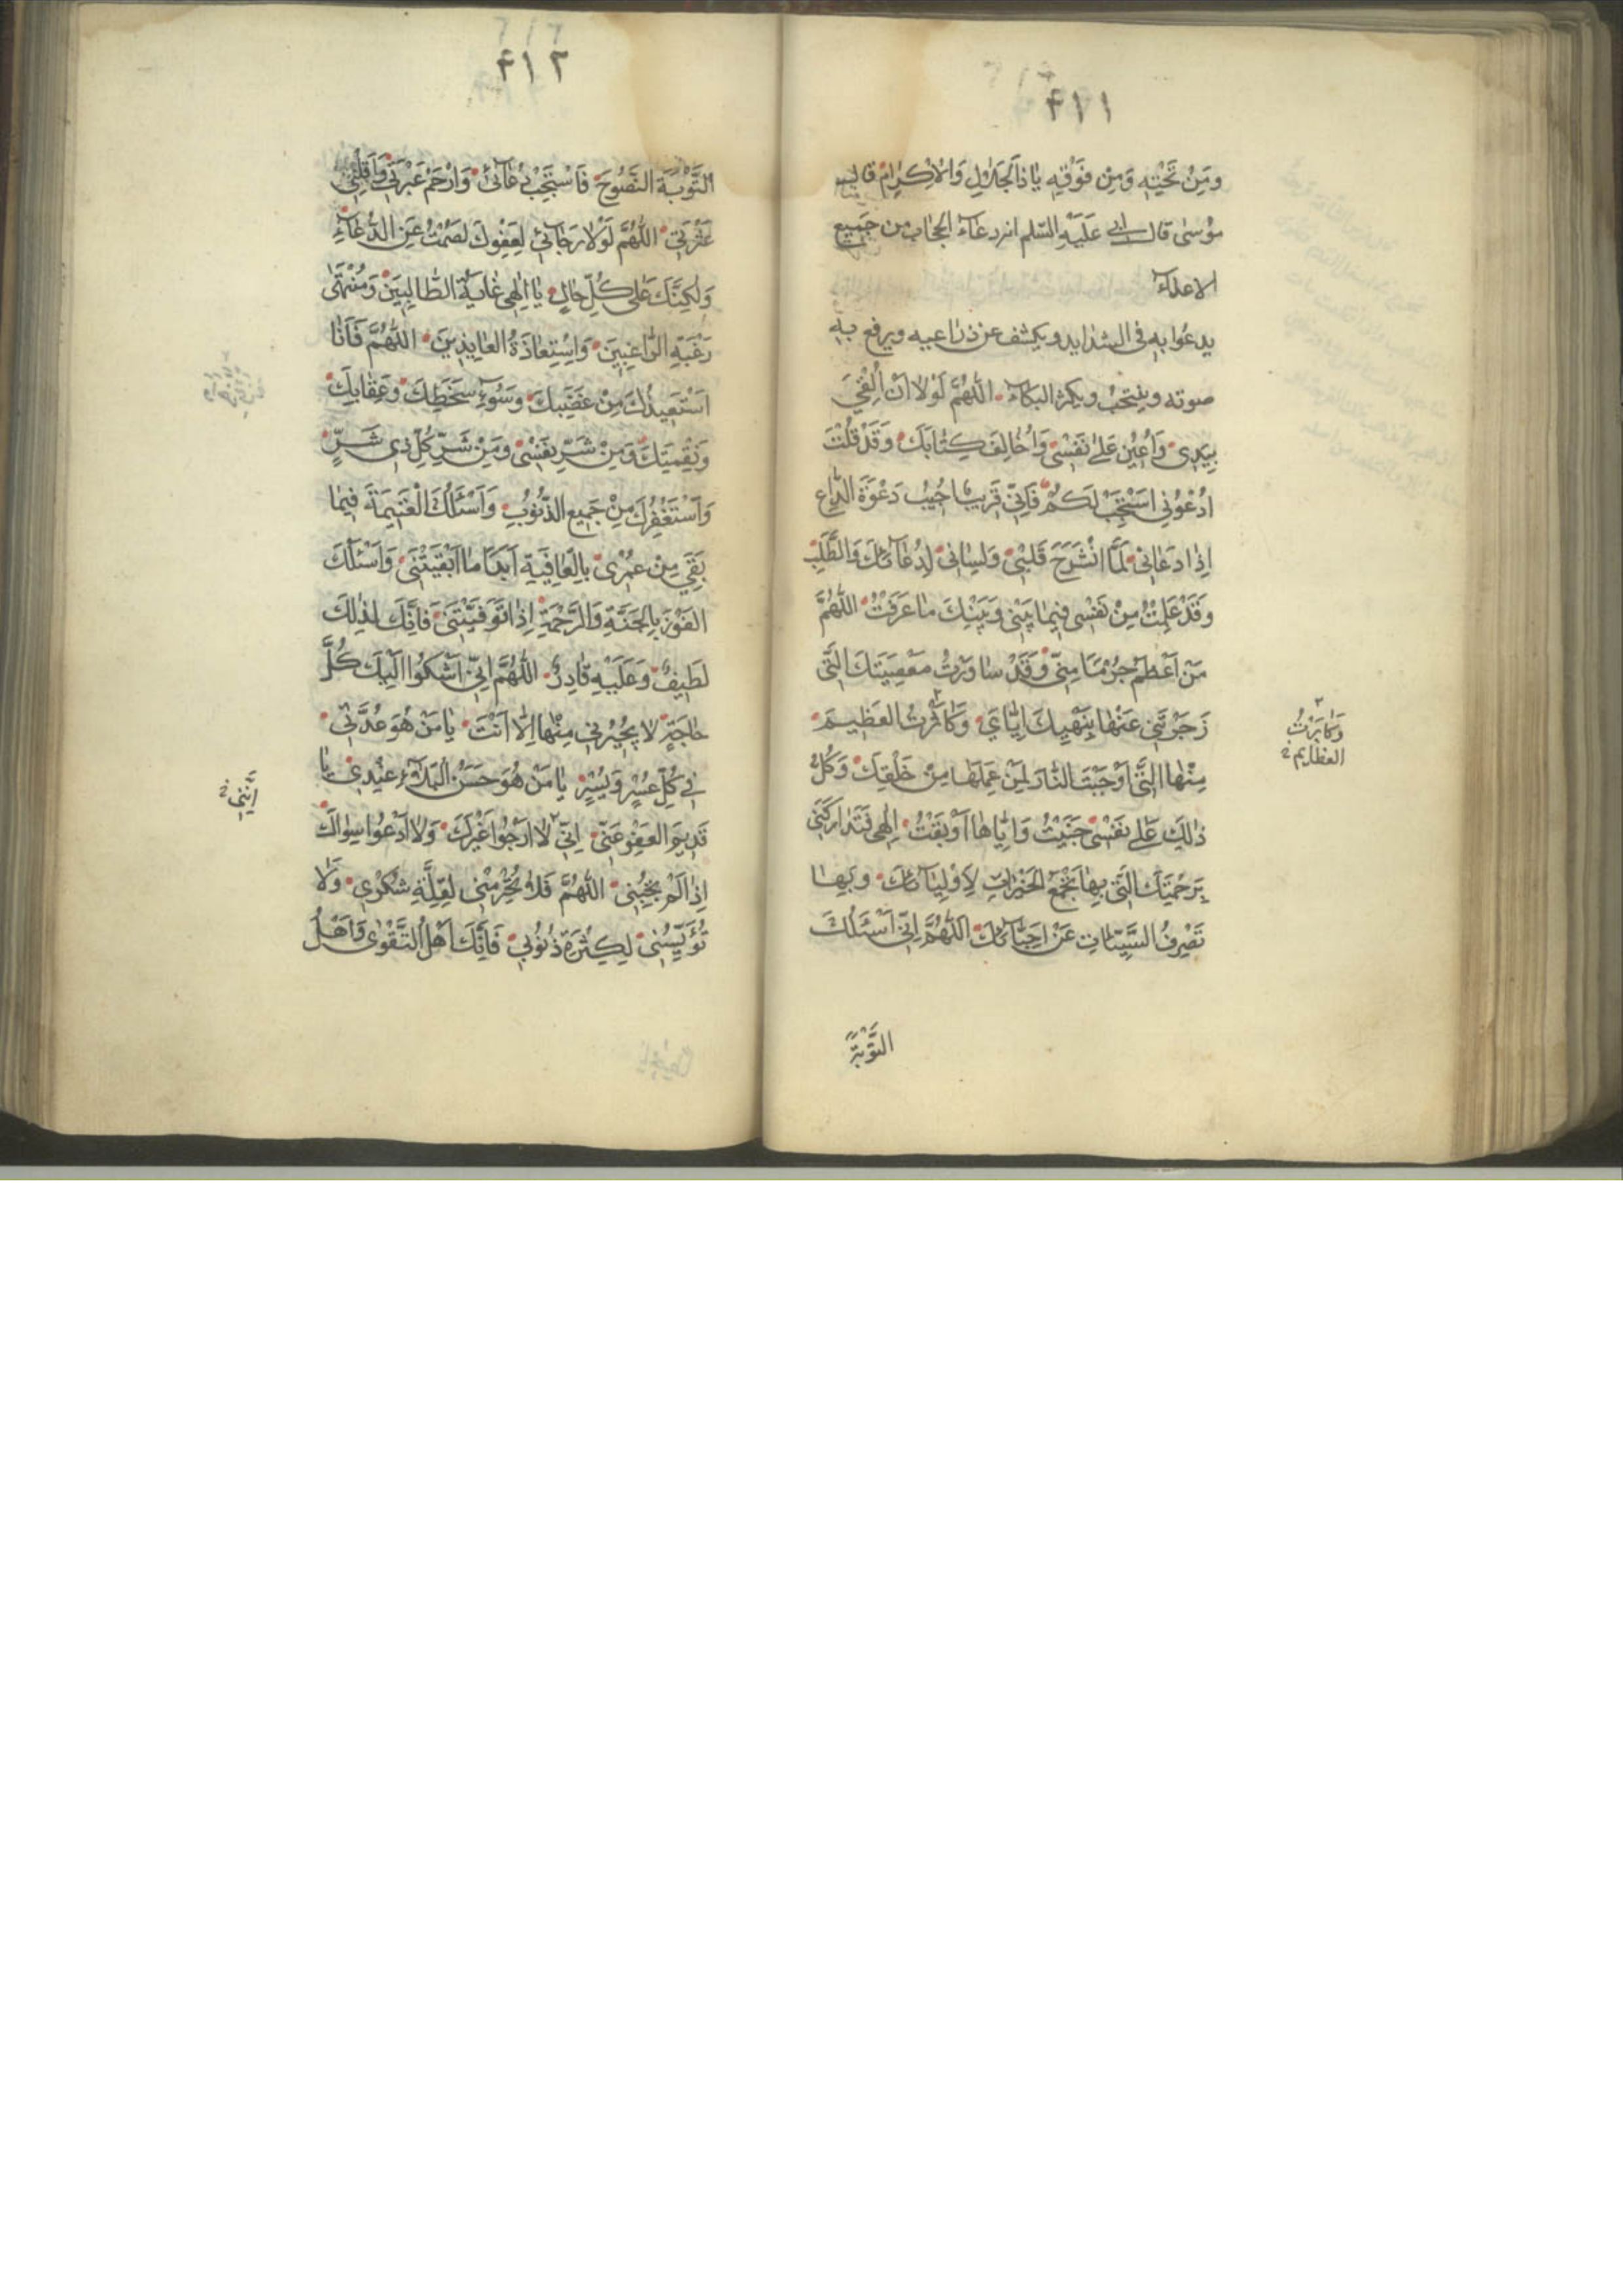 ۴۱۱
وَمِنْ تَحْتِهِ وَمِنْ فَوْقِهِ يَا ذَا الْجَلٰلِ وَالْاِكْرٰامِ قال
مُوسٰى قال ابى عَلَيْهِ السّلم انه دعاء الحجاب من جميع
الاعداء
يدعُوا بهِ فى الشدايد ويكشف عن ذراعيه ويرفع به
صوته وينتحب ويكثر البكاء اَللّٰهُمَّ لَوْلَا اَنْ اُلْقِيَ
بِيَدِى وَاُعِيْنَ عَلٰى نَفْسِى وَاُخٰالِفَ كِتٰابَكَ وَقَدْ قُلْتَ
اُدْعُونِى اَسْتَجِبْ لَكُمْ فَاِنِّى قَرِيبٌ اُجِيْبُ دَعْوَةَ الدّٰاعِ
اِذٰا دَعٰانِى لَمَّا انْشَرَحَ قَلْبِى وَلِسٰانِى لِدُعٰآئِكَ وَالطَّلَبِ
وَقَدْ عَلِمْتُ مِنْ نَفْسِى فِيمٰا بَيْنِى وَبَيْنَكَ مٰا عَرَفْتُ اللّٰهُمَّ
مَنْ اَعْظَمُ جُرْمًا مِنِّى وَقَدْ سٰاوَرْتُ مَعْصِيَتَكَ الَّتِى
زَجَرْتَنِى عَنْهٰا بِنَهْيِكَ اِيّٰاىَ وَكٰاثَرْتُ العَظِيمَ
مِنْهٰا الَّتِى اَوْجَبْتَ النّٰارَ لِمَنْ عَمِلَهٰا مِنْ خَلْقِكَ وَكُلُّ
ذٰلِكَ عَلٰى نَفْسِى جَنَيْتُ وَاِيّٰاهٰا اَوْبَقْتُ اِلٰهِى فَتَدٰارَكْنِى
بِرَحْمَتِكَ الَّتِى بِهٰا تَجْمَعُ الخَيْرٰاتِ لِاَوْلِيٰآئِكَ وَبِهٰا
تَصْرِفُ السَّيِّئٰاتِ عَنْ اَحِبّٰآئِكَ اَللّٰهُمَّ اِنِّى اَسْئَلُكَ
التَّوْبَةَ
وَكٰابَرْتُ
العظايم
۴۱۲
التَّوْبَةَ النَّصُوحَ فَاسْتَجِبْ دُعٰآئى وَارْحَمْ عَبْرَتِى وَاَقِلْنِى
عَثْرَتِى اللّٰهُمَّ لَوْلٰا رَجٰآئى لِعَفْوِكَ لَصَمَتُّ عَنِ الدُّعٰآءِ
وَلٰكِنَّكَ عَلٰى كُلِّ حٰالٍ يٰا اِلٰهِى غٰايَةُ الطّٰالِبِيَنْ وَمُنْتَهٰى
رَغْبَةِ الرّٰاغِبِيَنَ وَاسْتِعٰاذَةُ العٰايِذِينَ اللّٰهُمَّ فَاَنٰا
اَسْتَعِيذُكَ مِنْ غَضَبِكَ وَسُوءِ سَخَطِكَ وَعِقٰابِكَ
وَنَقِمَتِكَ وَمِنْ شَرِّ نَفْسِى وَمِنْ شَرِّ كُلِّ ذِى شَرٍّ
وَاَسْتَغْفِرُكَ مِنْ جَمِيعِ الذُّنُوبِ وَاَسْئَلُكَ الْغَنِيمَةَ فِيمٰا
بَقِيَ مِنْ عُمْرِى بِالعٰافِيَةِ اَبَدًا مٰا اَبْقَيْتَنِى وَاَسْئَلُكَ
الفَوْزَ بِالْجَنَّةِ وَالرَّحْمَةِ اِذٰا تَوَفَّيْتَنِى فَاِنَّكَ لِذٰلِكَ
لَطِيفٌ وَعَلَيْهِ قٰادِرٌ اللّٰهُمَّ اِنِّى اَشْكُوا اِلَيْكَ كُلَّ
حٰاجَةٍ لٰا يُجِيْرُنِى مِنْهٰا اِلّٰا اَنْتَ يٰا مَنْ هُوَ عُدَّتِى
فِى كُلِّ عُسْرٍ وَيُسْرٍ يٰا مَنْ هُوَ حَسَنُ الْبَلٰآءِ عِنْدِى يٰا
قَدِيمَ العَفْوِ عَنِّى اِنِّى لٰا اَرْجُوا غَيْرَكَ وَلٰا اَدْعُوا سِوٰاكَ
اِذٰا لَمْ تُجِبْنِى اللّٰهُمَّ فَلٰا تَحْرِمْنِى لِقِلَّةِ شُكْرِى وَلٰا
تُؤَيِّسْنِى لِكَثْرَةِ ذُنُوبِى فَاِنَّكَ اَهْلُ التَّقْوٰى وَاَهْلُ
اِنَّنِى